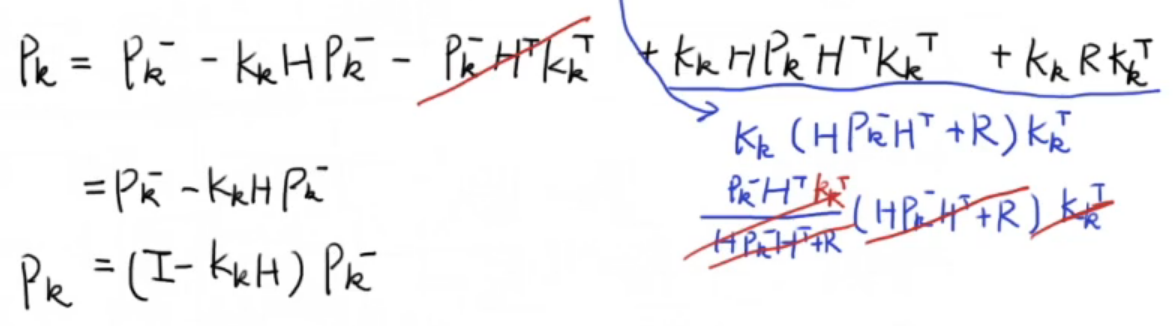 Pₖ = Pₖ⁻ - KₖHPₖ⁻ - Pₖ⁻HᵀKₖᵀ + KₖHPₖ⁻HᵀKₖᵀ + KₖRKₖᵀ
Kₖ(HPₖ⁻Hᵀ + R)Kₖᵀ
= Pₖ⁻ - KₖHPₖ⁻
Pₖ⁻Hᵀ Kₖᵀ
(HPₖ⁻Hᵀ + R) Kₖᵀ
HPₖ⁻Hᵀ + R
Pₖ = (I - KₖH) Pₖ⁻